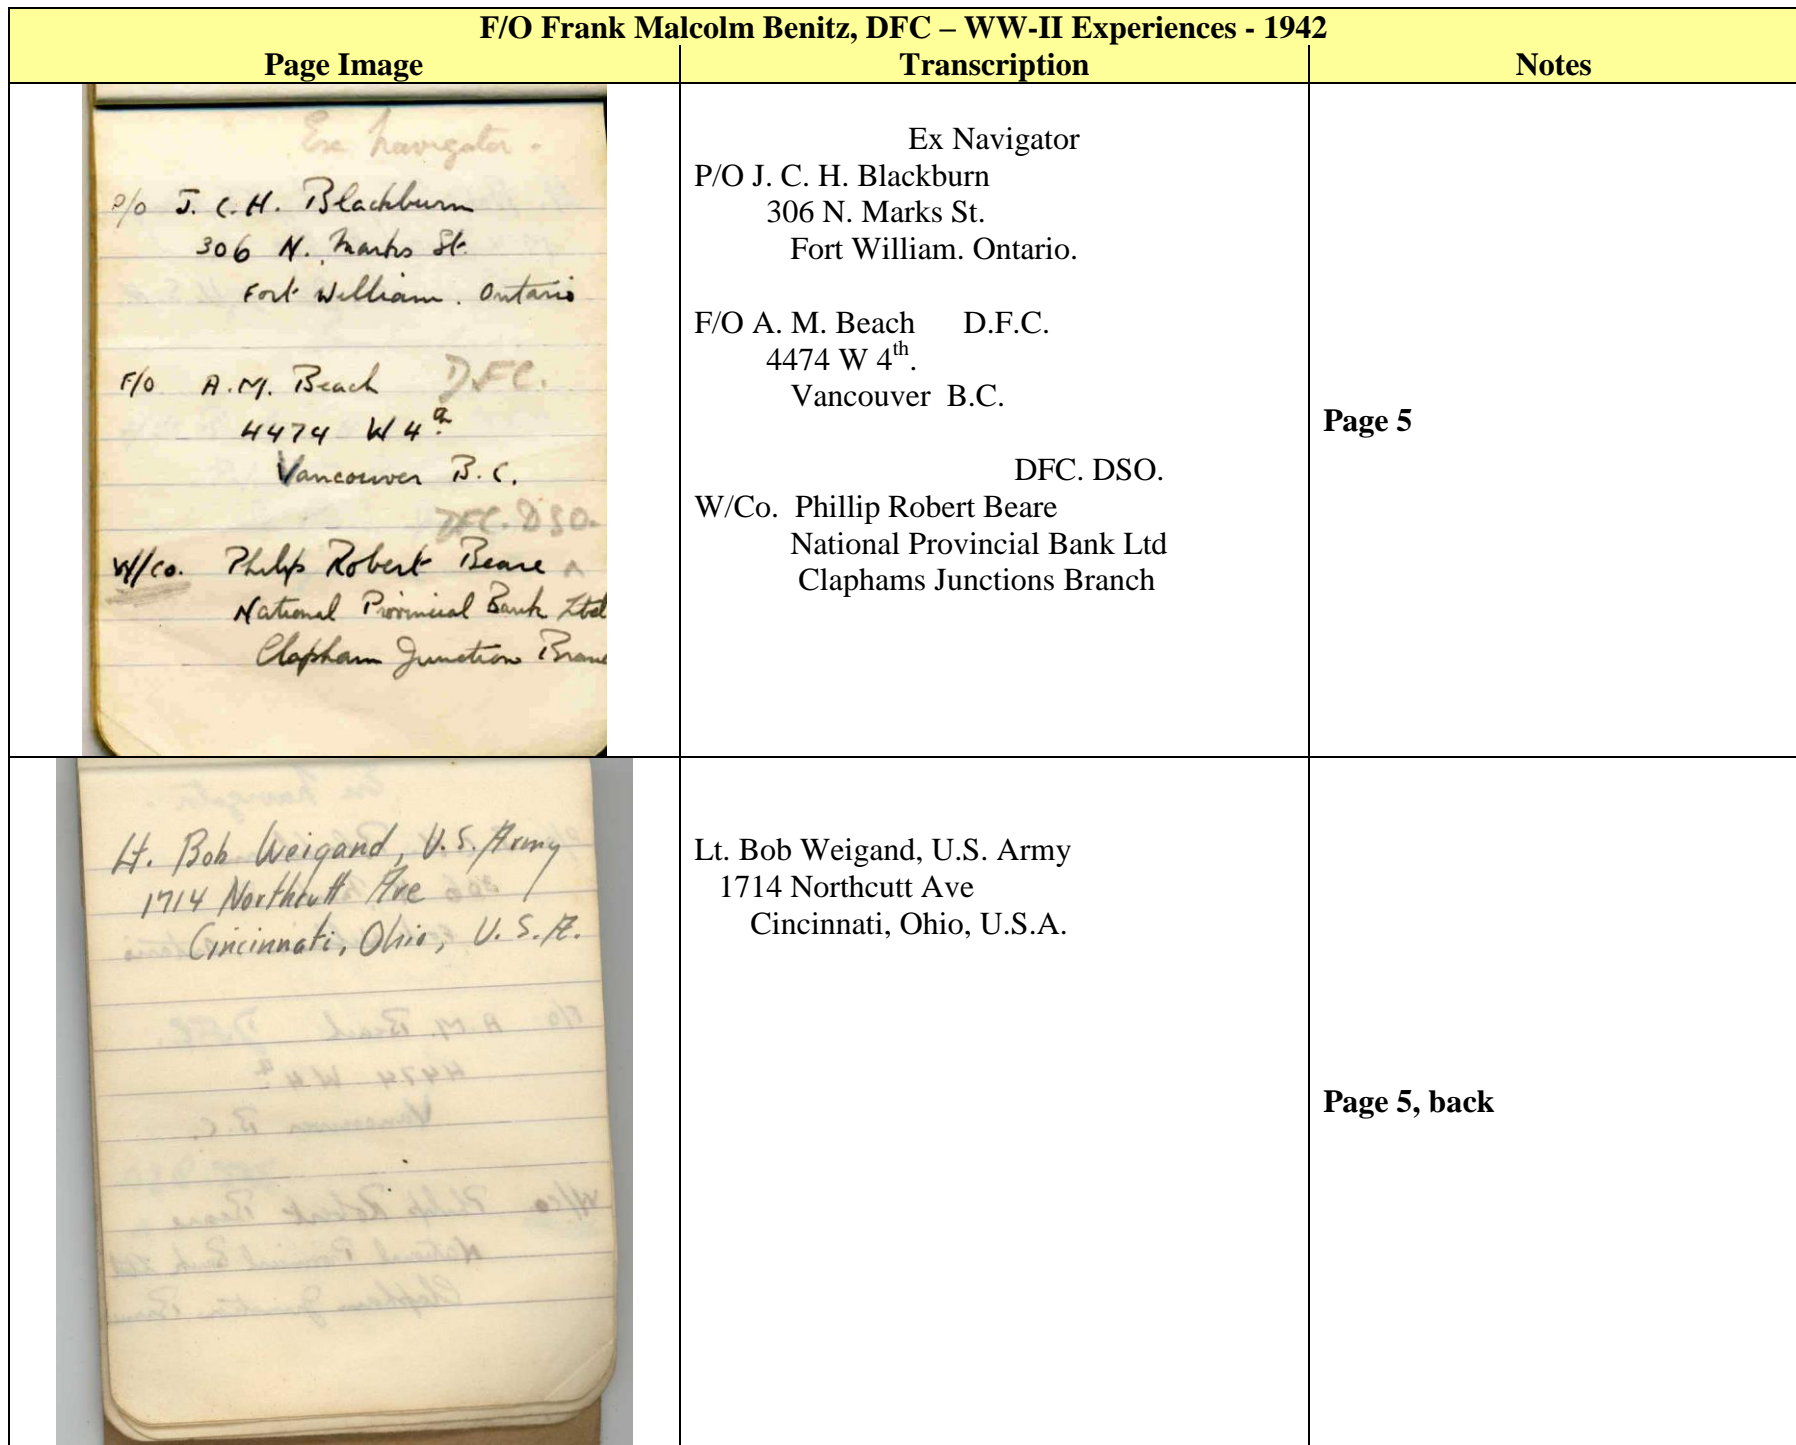 F/O Frank Malcolm Benitz, DFC – WW-II Experiences - 1942
Page Image
Transcription
Notes
Ex navigator -
P/O J. C. H. Blackburn
306 N. Marks St.
Fort William. Ontario
F/O A.M. Beach DFC.
4474 W 4th
Vancouver B.C.
DFC. DSO.
W/Co. Philip Robert Beare ^
National Provincial Bank Ltd
Clapham Junction Branc
Ex Navigator
P/O J. C. H. Blackburn
306 N. Marks St.
Fort William. Ontario.
F/O A. M. Beach D.F.C.
4474 W 4th.
Vancouver B.C.
DFC. DSO.
W/Co. Phillip Robert Beare
National Provincial Bank Ltd
Claphams Junctions Branch
Page 5
Lt. Bob Weigand, U.S. Army
1714 Northcutt Ave
Cincinnati, Ohio, U.S.A.
Lt. Bob Weigand, U.S. Army
1714 Northcutt Ave
Cincinnati, Ohio, U.S.A.
Page 5, back